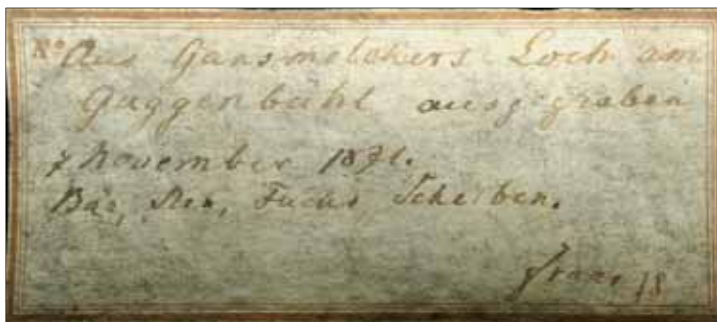 No Aus Gansmelchers Loch am
Guggenbühl ausgegraben
7 November 1871.
Bär, Fuchs, Scherben.